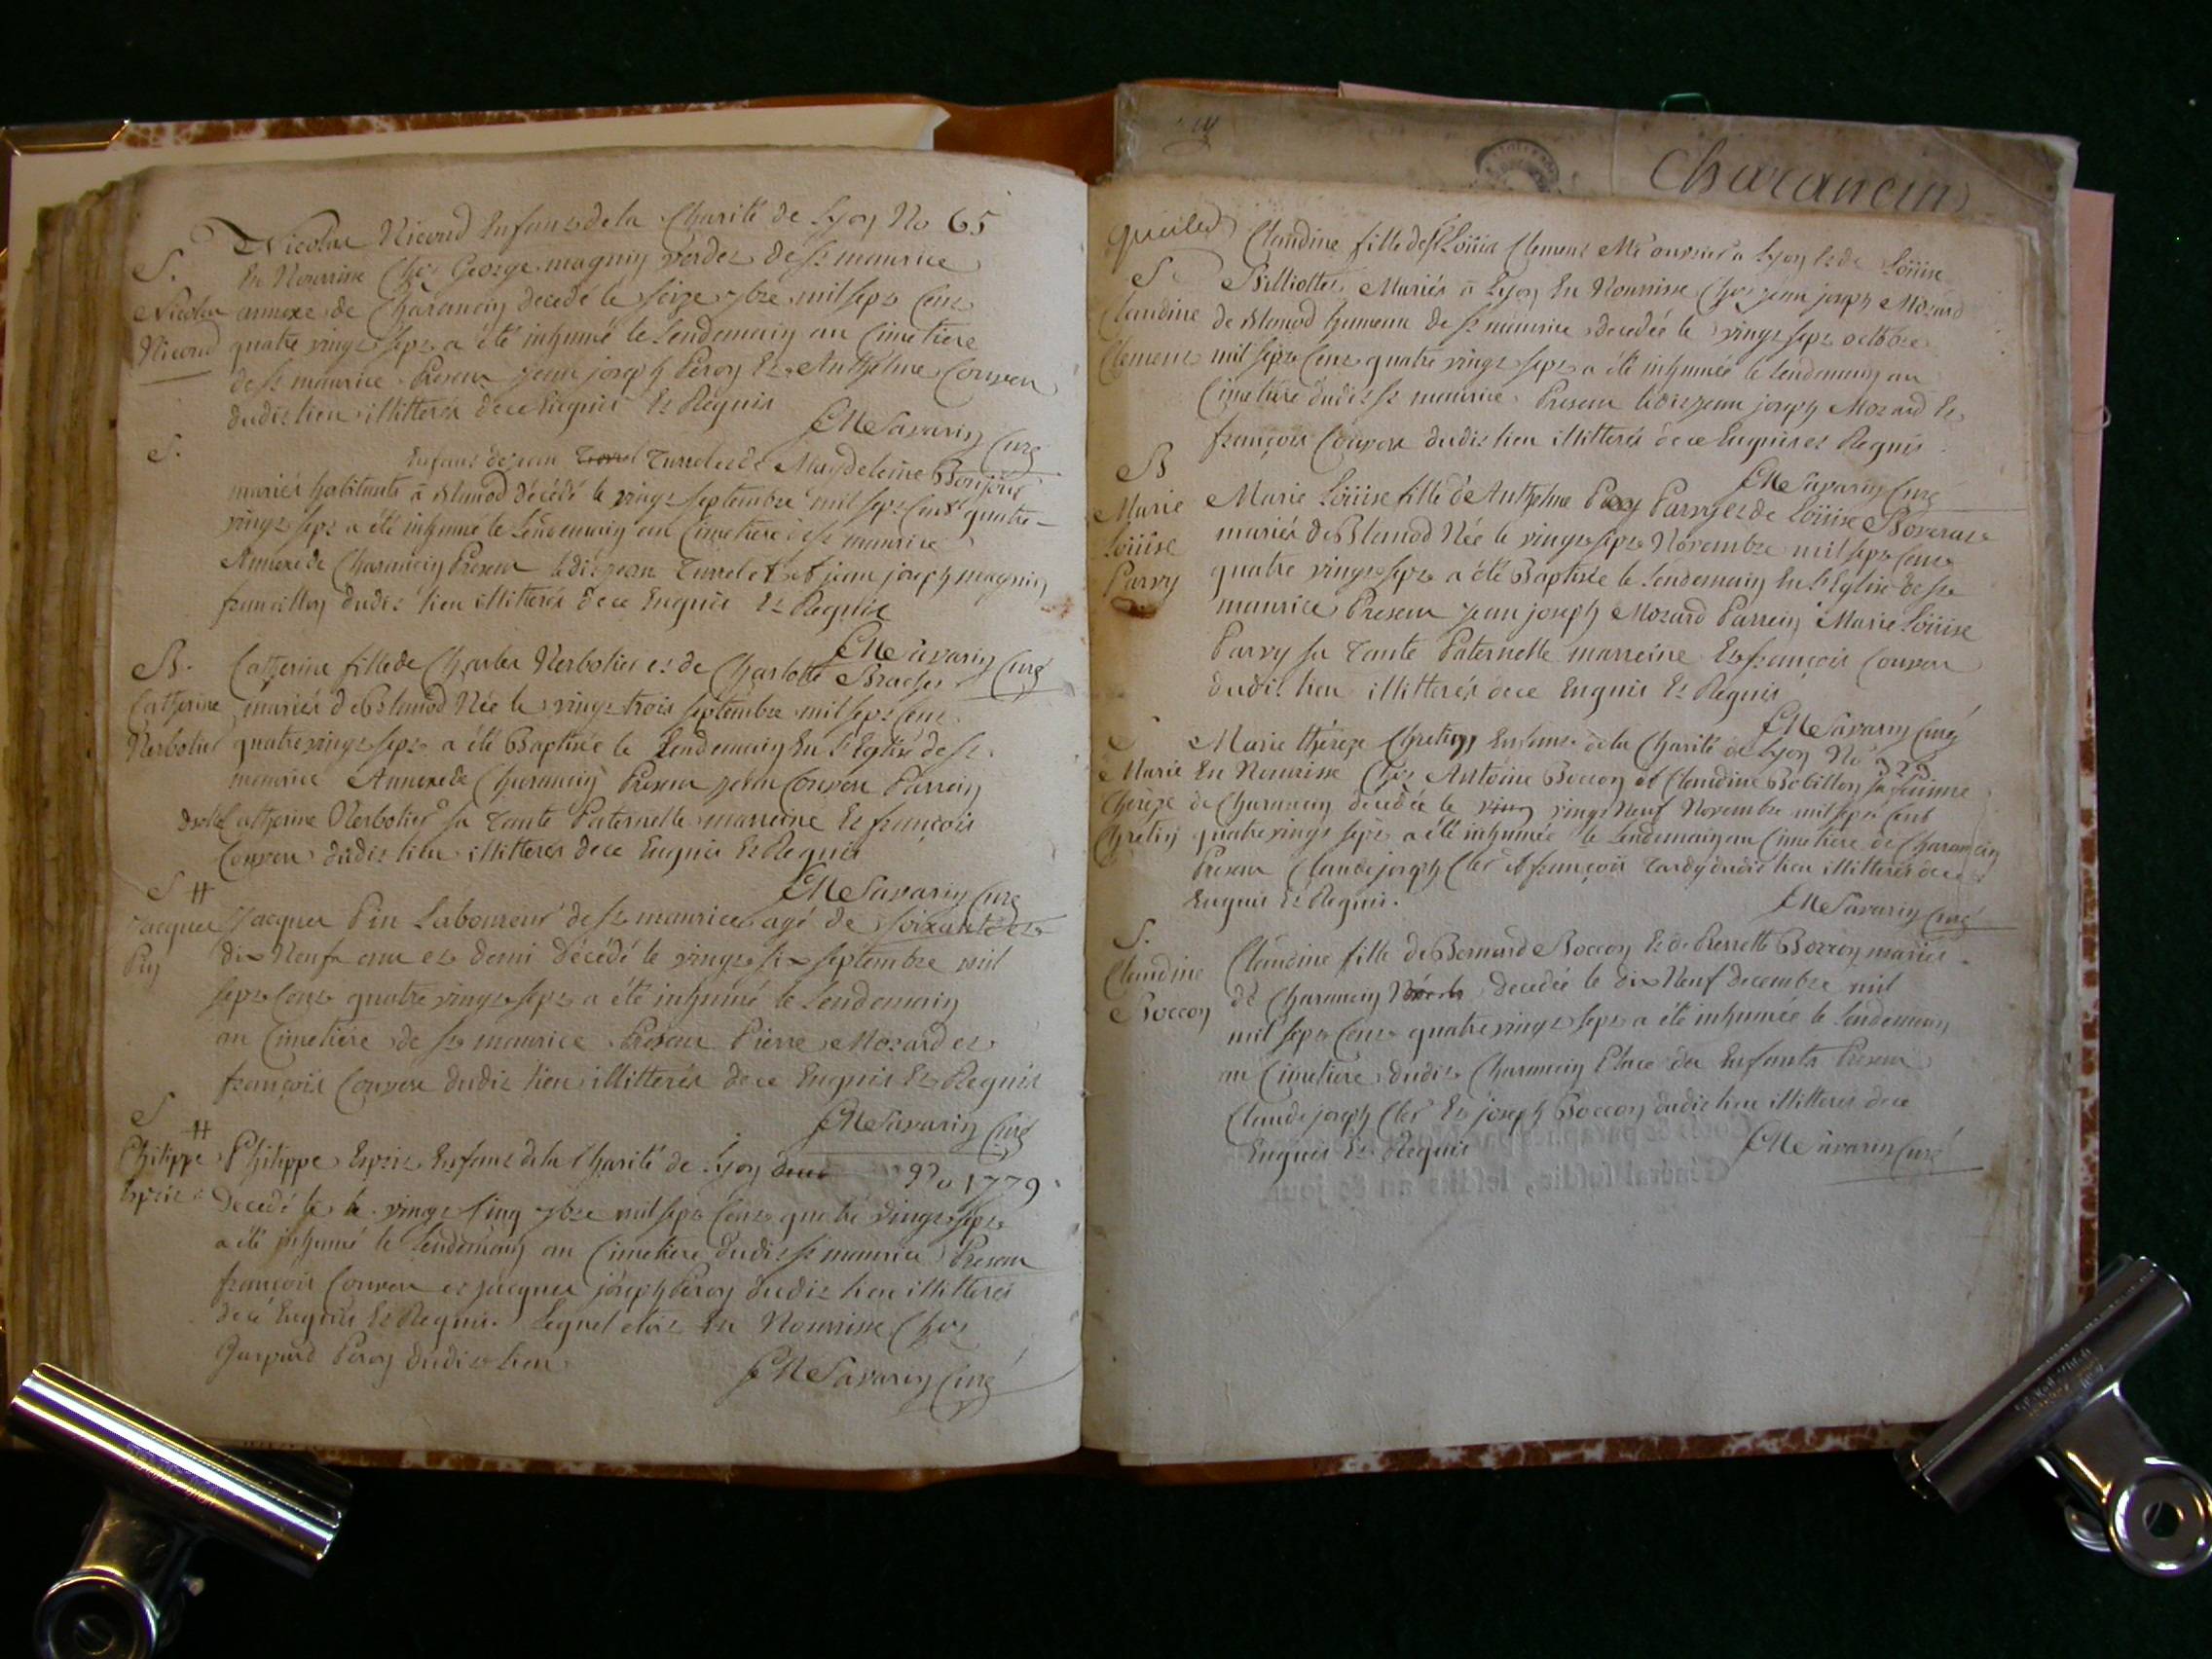 Nicolas Nicoud Enfant de la Charité de Lyon No 65
S. en Nourrice Chez George magnin verdet de st maurice
Nicolas annexe de Charancin decedé le seize 7bre mil sept Cent
Nicoud quatre vingt sept a été inhumé le Lendemain au Cimetiere
de st maurice Presens jean joseph Peron Et Anthelme Convers
dudit lieu illitterés de ce Enquis Et Requis
JM Savarin Curé
S.
Enfant de jean Turrel et de Magdeleine Bonjour
mariés habitants à Blanod décédé le vingt septembre mil sept Cent quatre
vingt sept a été inhumé le Lendemain au Cimetiere de st maurice
Annexe de Charancin Presens ledit jean Turrel et jean joseph magnin
francillon dudit lieu illitterés de ce Enquis Et Requis
JM Savarin Curé
B. Catherine fille de Charles Nerbolier et de Charlotte
Catherine mariés de Blanod Née le vingt trois septembre mil sept Cent
Nerbolier quatre vingt sept a été Baptisée le Lendemain En l'Eglise de st
maurice Annexe de Charancin Presens jean Convers Parrein
Catherine Nerbolier sa Tante Paternelle marreine Et françois
Convers dudit lieu illitterés de ce Enquis Et Requis
JM Savarin Curé
S H
Jacques Jacques Pin Laboureur de st maurice agé de soixante et
Pin dix Neuf ans et demi décédé le vingt six septembre mil
sept Cent quatre vingt sept a été inhumé le Lendemain
au Cimetiere de st maurice Presens Pierre Mozard et
françois Convers dudit lieu illitterés de ce Enquis Et Requis
JM Savarin Curé
S H
Philippe Philippe Esprit Enfant de la Charité de Lyon No 1779
Esprit decedé le le vingt Cinq 7bre mil sept Cent quatre vingt sept
a été inhumé le Lendemain au Cimetiere dudit st maurice Presens
françois Convers et jacques joseph Peron dudit lieu illitterés
de ce Enquis Et Requis. Lequel etoit En Nourrice Chez
Gaspard Peron dudit lieu
JM Savarin Curé
Charancin
Claudine fille de sr Loüis Clement Me ouvrier à Lyon Et de Loüise
S Billiottet Mariés à Lyon En Nourrice Chez jean joseph Mozard
Claudine de Blanod hameau de st maurice decedée le vingt sept octobre
Clement mil sept Cent quatre vingt sept a été inhumée le Lendemain au
Cimetiere dudit st maurice Presens ledit jean joseph Mozard Et
françois Convers dudit lieu illitterés de ce Enquis et Requis
JM Savarin Curé
B
Marie Marie Loüise fille de Anthelme Parvy et de Loüise
Loüise mariés de Blanod Née le vingt sept Novembre mil sept Cent
Parvy quatre vingt sept a été Baptisée le Lendemain En l'Eglise de st
maurice Presens jean joseph Mozard Parrein Marie Loüise
Parvy sa Tante Paternelle marreine Et françois Convers
dudit lieu illitterés de ce Enquis Et Requis
JM Savarin Curé
S Marie thérèze Chretin Enfant de la Charité de Lyon No 323
Marie En Nourrice Chez Antoine Boccon et Claudine Bobillon sa femme
Thérèze de Charancin decedée le vingt Neuf Novembre mil sept Cent
Chretin quatre vingt sept a été inhumée le Lendemain au Cimetiere de Charancin
Presens Claude joseph Cler et françois Tardy dudit lieu illitterés de ce
Enquis Et Requis.
JM Savarin Curé
S.
Claudine Claudine fille de Bernard Boccon Et de Pierrette Boccon mariés
Boccon de Charancin decedée le dix Neuf decembre mil
mil sept Cent quatre vingt sept a été inhumée le Lendemain
au Cimetiere dudit Charancin Place des Enfants Presens
Claude joseph Cler Et joseph Boccon dudit lieu illitterés de ce
Enquis Et Requis JM Savarin Curé